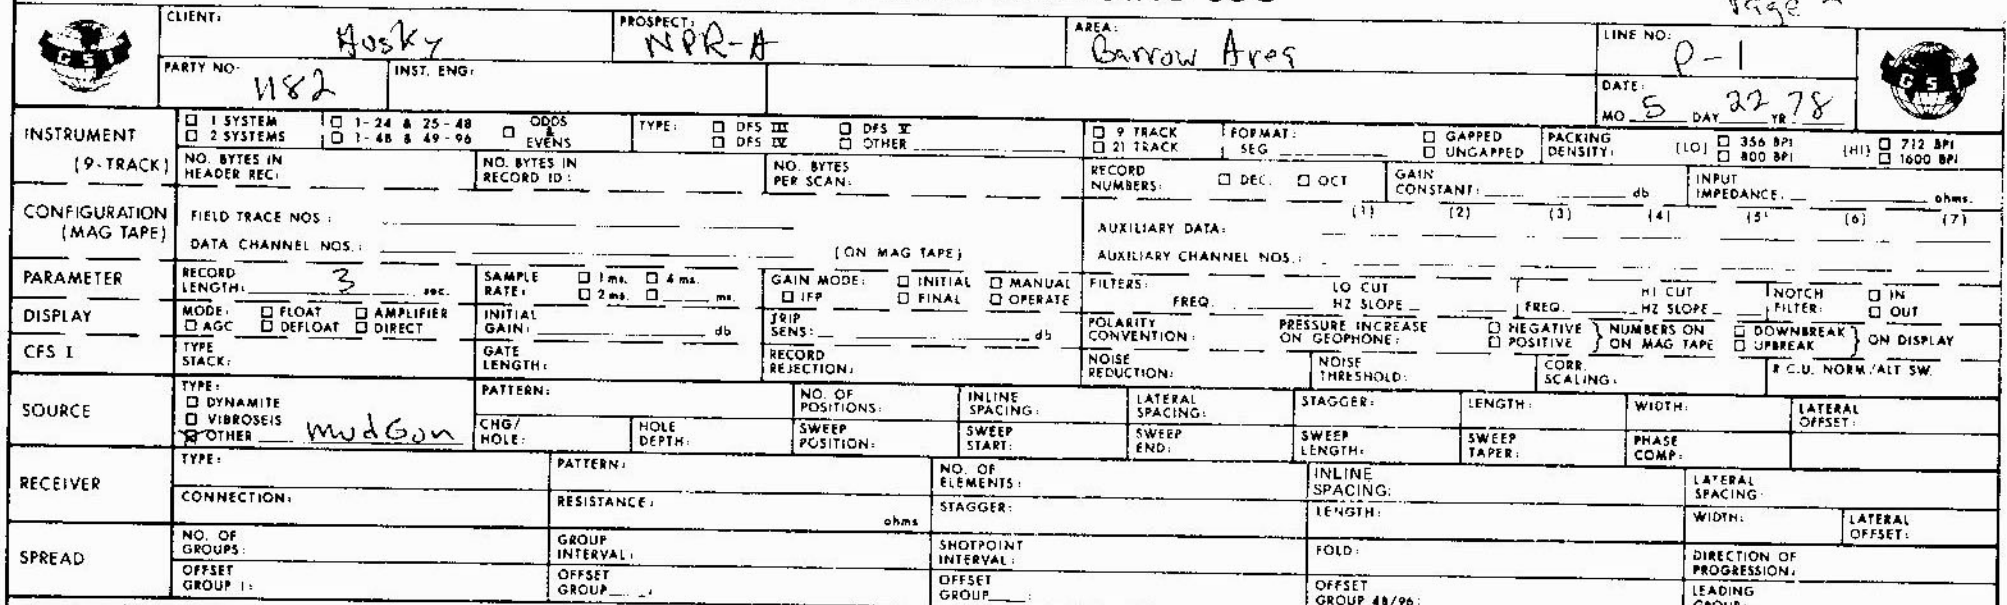 Page 2
CLIENT: Husky PROSPECT: NPR-A AREA: Barrow Area LINE NO: P-1
GSI GSI
PARTY NO: 1182 INST. ENG: DATE:
MO 5 DAY 22 YR 78
INSTRUMENT (9-TRACK)
☐ 1 SYSTEM ☐ 1-24 & 25-48 ☐ ODDS & EVENS TYPE: ☐ DFS III ☐ DFS V ☐ 9 TRACK FORMAT: ☐ GAPPED PACKING DENSITY: (LO) ☐ 356 BPI (HI) ☐ 712 BPI
☐ 2 SYSTEMS ☐ 1-48 & 49-96 ☐ DFS IV ☐ OTHER ☐ 21 TRACK SEG ☐ UNGAPPED ☐ 800 BPI ☐ 1600 BPI
NO. BYTES IN HEADER REC: NO. BYTES IN RECORD ID: NO. BYTES PER SCAN: RECORD NUMBERS: ☐ DEC. ☐ OCT GAIN CONSTANT: db INPUT IMPEDANCE. ohms.
CONFIGURATION (MAG TAPE)
FIELD TRACE NOS: AUXILIARY DATA: (1) (2) (3) (4) (5) (6) (7)
DATA CHANNEL NOS.: (ON MAG TAPE) AUXILIARY CHANNEL NOS.:
PARAMETER
RECORD LENGTH: 3 sec. SAMPLE RATE: ☐ 1 ms. ☐ 4 ms. ☐ 2 ms. ☐ ms. GAIN MODE: ☐ INITIAL ☐ MANUAL ☐ IFP ☐ FINAL ☐ OPERATE FILTERS: FREQ. LO CUT HZ SLOPE FREQ. HI CUT HZ SLOPE NOTCH FILTER: ☐ IN ☐ OUT
DISPLAY
MODE: ☐ FLOAT ☐ AMPLIFIER ☐ AGC ☐ DEFLOAT ☐ DIRECT INITIAL GAIN: db TRIP SENS: db POLARITY CONVENTION: PRESSURE INCREASE ON GEOPHONE: ☐ NEGATIVE ☐ POSITIVE } NUMBERS ON MAG TAPE ☐ DOWNBREAK ☐ UPBREAK } ON DISPLAY
CFS I
TYPE STACK: GATE LENGTH: RECORD REJECTION: NOISE REDUCTION: NOISE THRESHOLD: CORR. SCALING: R.C.U. NORM./ALT SW.
SOURCE
TYPE: ☐ DYNAMITE ☐ VIBROSEIS ☒ OTHER MudGun
PATTERN: NO. OF POSITIONS: INLINE SPACING: LATERAL SPACING: STAGGER: LENGTH: WIDTH: LATERAL OFFSET:
CHG/HOLE: HOLE DEPTH: SWEEP POSITION: SWEEP START: SWEEP END: SWEEP LENGTH: SWEEP TAPER: PHASE COMP:
RECEIVER
TYPE: PATTERN: NO. OF ELEMENTS: INLINE SPACING: LATERAL SPACING:
CONNECTION: RESISTANCE: ohms STAGGER: LENGTH: WIDTH: LATERAL OFFSET:
SPREAD
NO. OF GROUPS: GROUP INTERVAL: SHOTPOINT INTERVAL: FOLD: DIRECTION OF PROGRESSION:
OFFSET GROUP 1: OFFSET GROUP : OFFSET GROUP : OFFSET GROUP 48/96: LEADING GROUP: